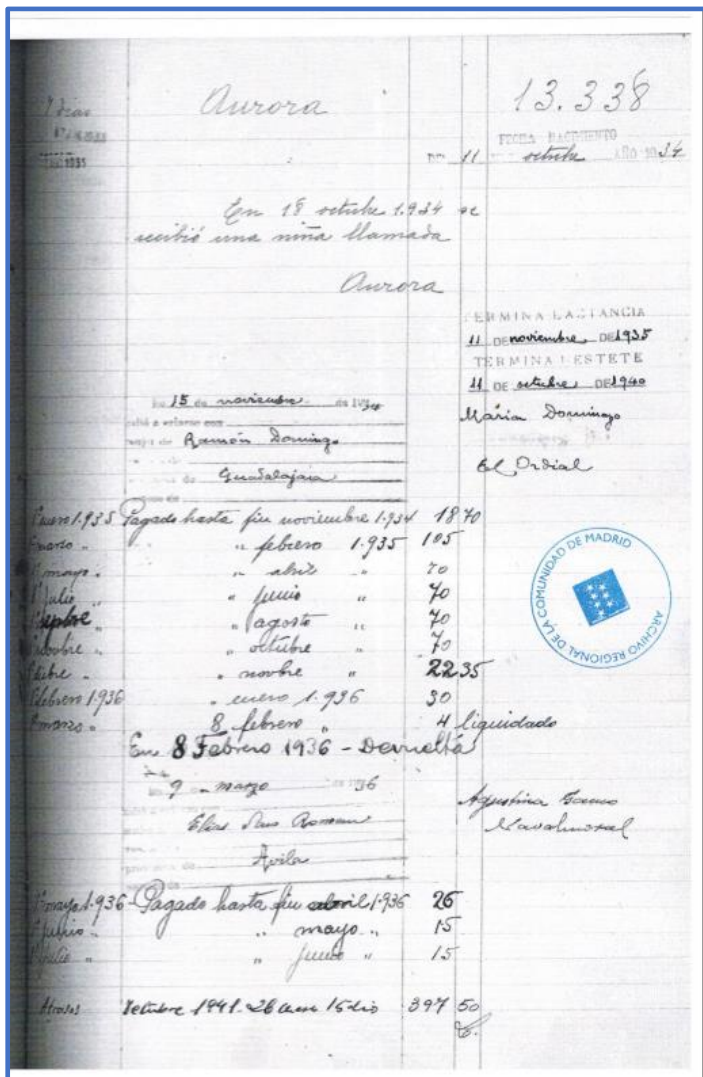 Aurora
13.338
7 dias
FECHA NACIMIENTO
DIA 11 octubre AÑO 1934
En 18 octubre 1.934 se
recibió una niña llamada
Aurora
TERMINA LACTANCIA
11 DE noviembre DE 1935
TERMINA DESTETE
11 DE octubre DE 1940
15 de noviembre de 1934
María Domingo
Ramón Domingo
El Ordial
Guadalajara
Enero 1.935 Pagado hasta fin noviembre 1.934 18 70
marzo " " febrero 1.935 105
mayo " " abril " 70
Julio " " junio " 70
Sepbre " " agosto " 70
" octubre " 70
" novbre " 22 35
febrero 1.936 " enero 1.936 30
marzo " 8 febrero " 4 liquidado
En 8 Febrero 1936 - Devuelta
9 marzo 36
Agustina
Elias Roman
Navalmoral
Avila
mayo 1.936 - Pagado hasta fin abril 1.936 26
Junio " " mayo " 15
Julio " " junio " 15
Atrasos Octubre 1941. 26 15 dio 397 50
ARCHIVO REGIONAL DE LA COMUNIDAD DE MADRID